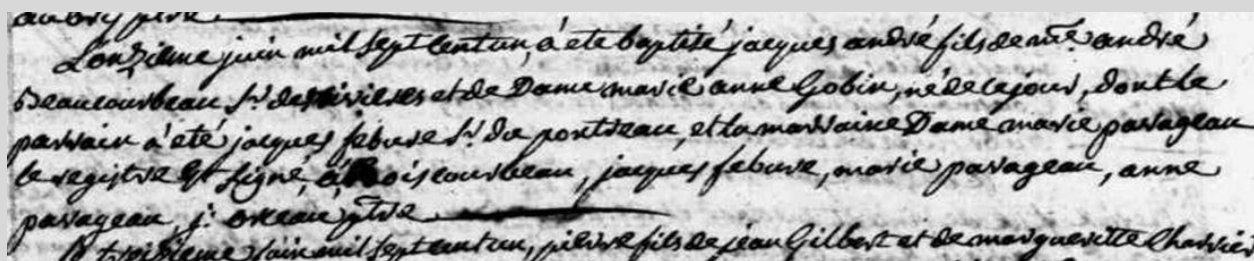 aubry ptre
L'onzieme juin mil sept cent un, à ete baptisé jacques andré fils de mre. andré
Beaucourbeau Sr. des rivieres et de Dame marie anne Gobin, né de ce jour, dont le
parrain à eté jacques febure Sr. du pontreau, et la marraine Dame marie parageau
le registre est signé, a. boiscourbeau, jacques febure, marie parageau, anne
parageau, j. oreau ptre
troisieme juin mil sept cent un, pierre fils de jean Gilbert et de margueritte Charrier